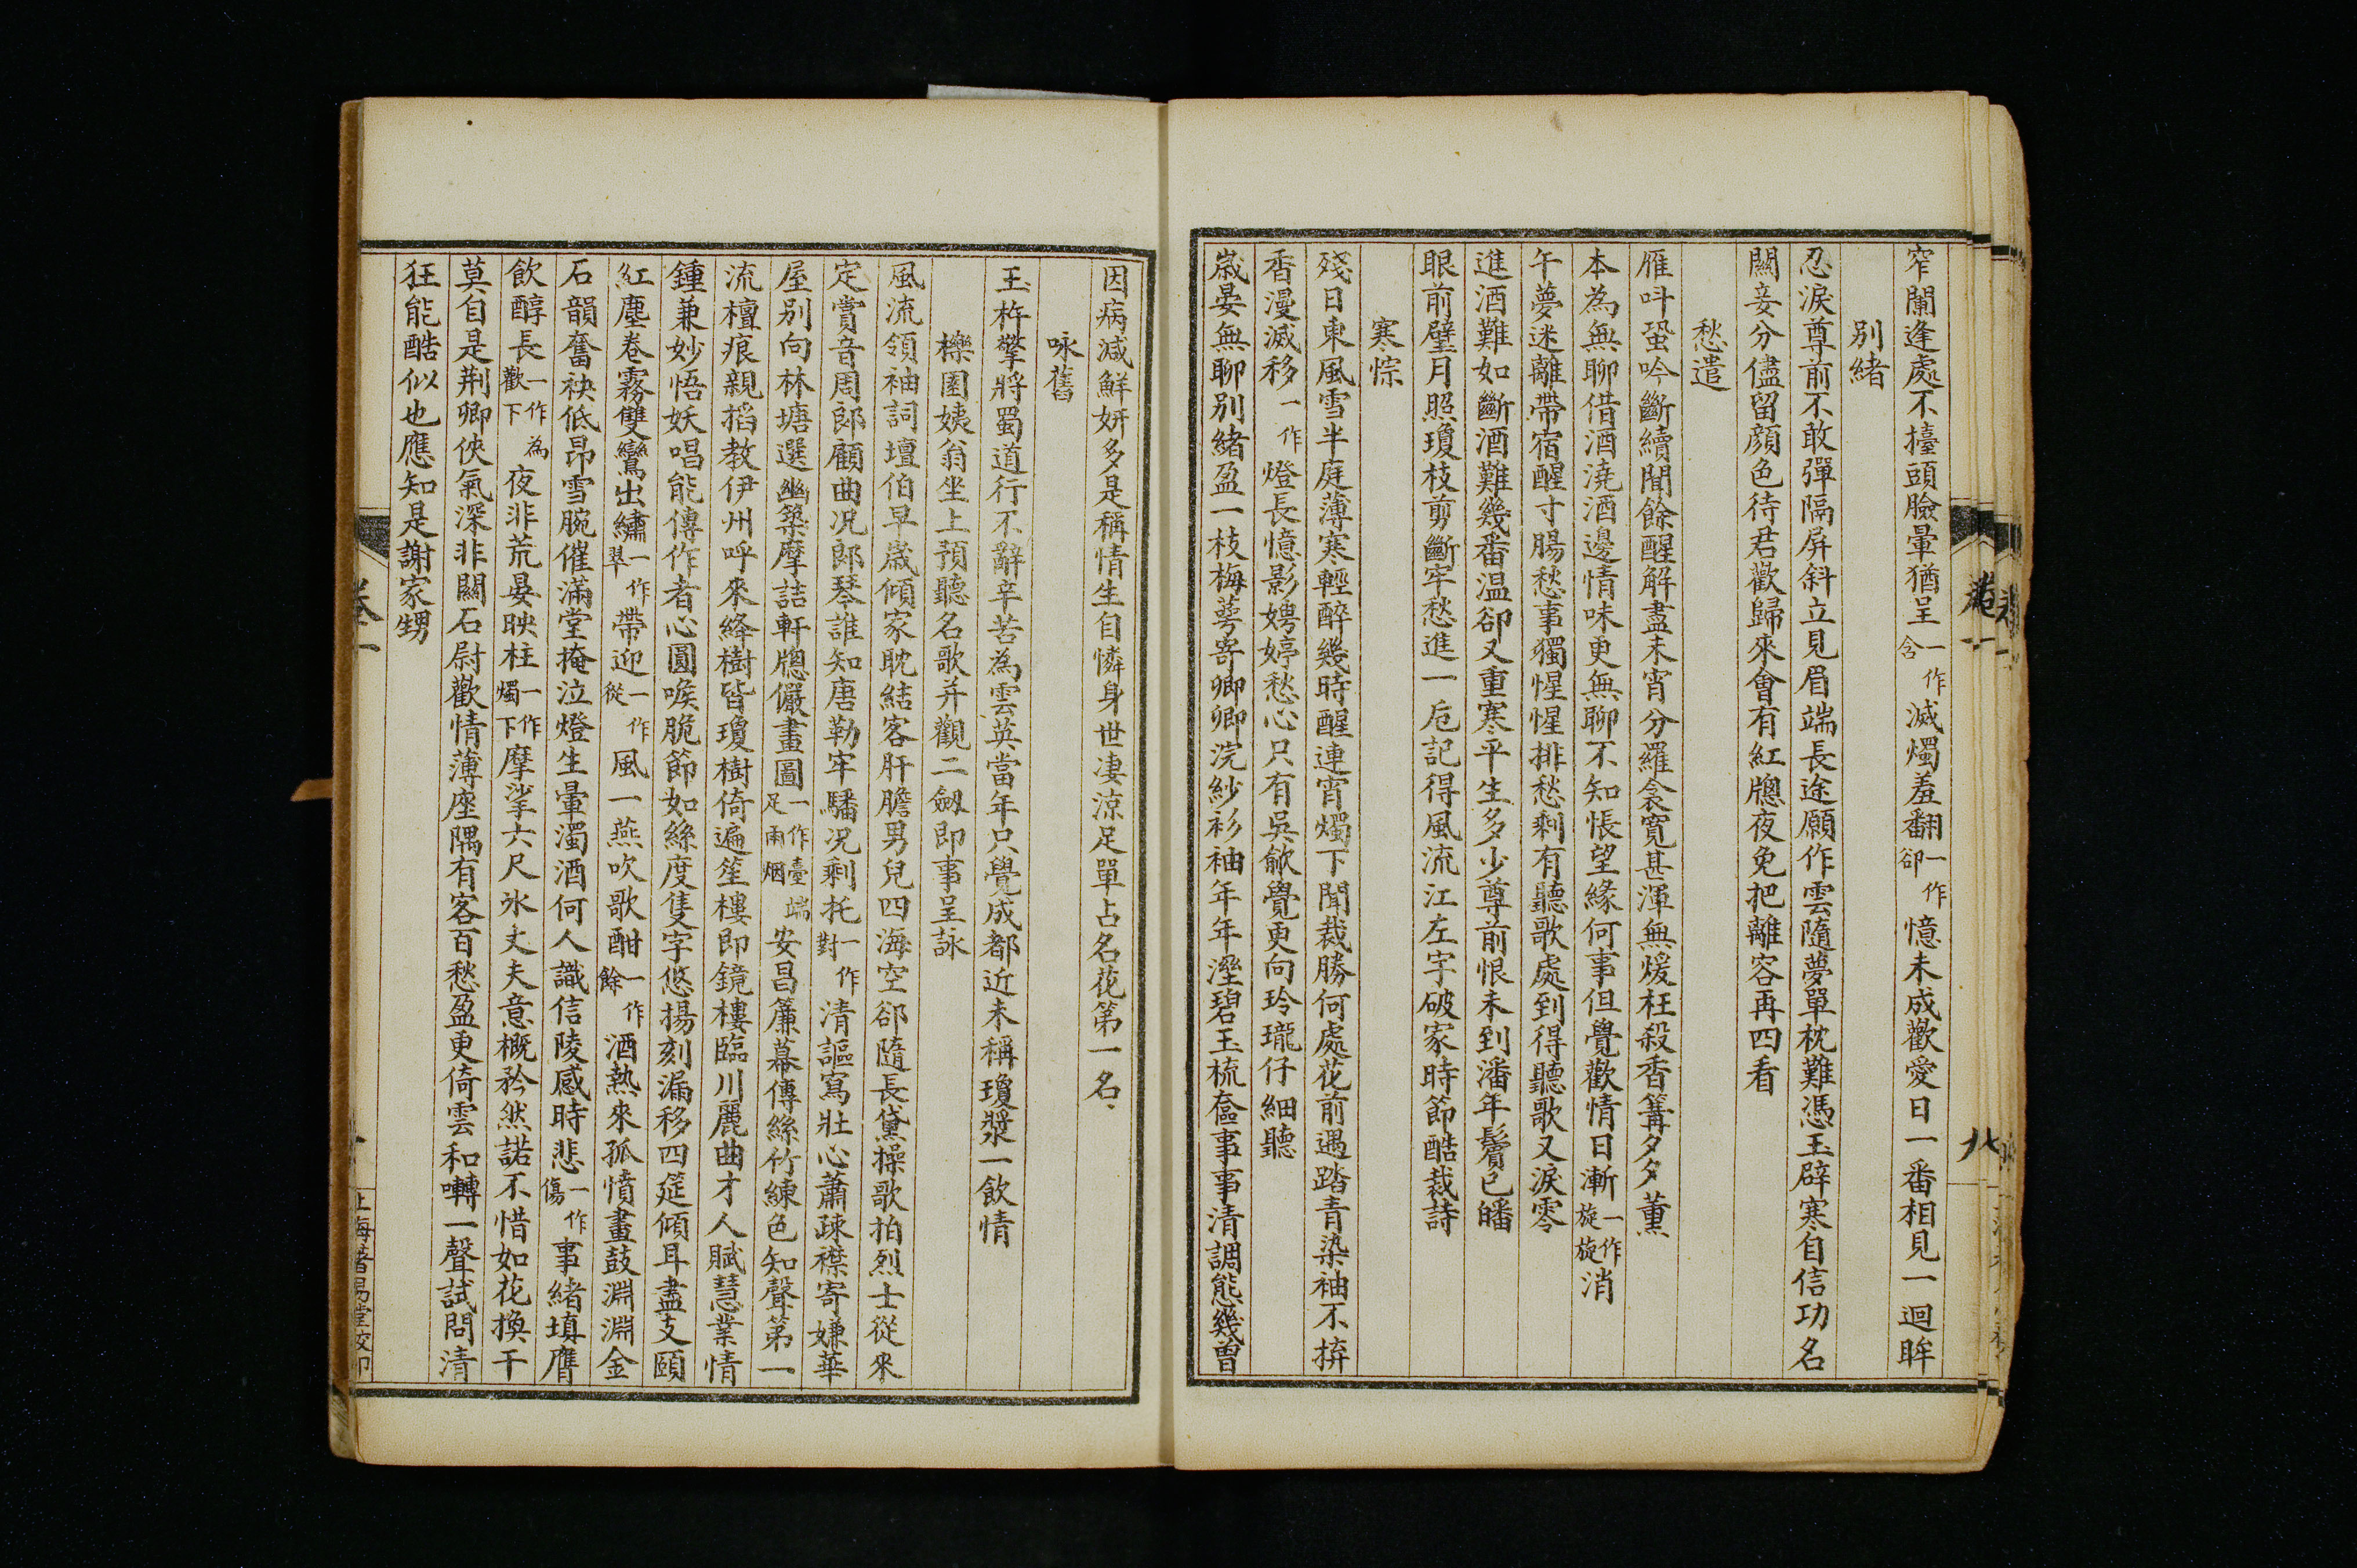 窄闌逢處不擡頭臉暈猶呈一作含滅燭羞翻一作卻憶未成歡愛日一番相見一迴眸
別緒
忍淚尊前不敢彈隔屏斜立見眉端長途願作雲隨夢單枕難憑玉辟寒自信功名
關妾分儘留顔色待君歡歸來會有紅牕夜免把離容再四看
愁遣
雁叫蛩吟斷續聞餘醒解盡未宵分羅衾寬甚渾無煖枉殺香篝夕夕薰
本為無聊借酒澆酒邊情味更無聊不知悵望緣何事但覺歡情日漸一作旋旋消
午夢迷離帶宿醒寸腸愁事獨惺惺排愁剩有聽歌處到得聽歌又淚零
進酒難如斷酒難幾番温卻又重寒平生多少尊前恨未到潘年鬢已皤
眼前璧月照瓊枝剪斷牢愁進一卮記得風流江左字破家時節酷裁詩
寒悰
殘日東風雪半庭薄寒輕醉幾時醒連宵燭下聞裁勝何處花前遇踏青染袖不拚
香漫滅移一作燈長憶影娉婷愁心只有吳歈覺更向玲瓏仔細聽
歲晏無聊别緒盈一枝梅萼寄卿卿浣紗衫袖年年溼碧玉梳奩事事清調態幾曾
卷一
八
因病減鮮妍多是稱情生自憐身世凄涼足單占名花第一名
咏舊
玉杵擎將蜀道行不辭辛苦為雲英當年只覺成都近未稱瓊漿一飲情
櫟園姨翁坐上預聽名歌并觀二劒即事呈詠
風流領袖詞壇伯早歲傾家耽結客肝膽男兒四海空郤隨長黛操歌拍烈士從來
定賞音周郎顧曲况郎琴誰知唐勒牢騷况剩托一作對清謳寫壯心蕭疎襟寄嫌華
屋别向林塘選幽築摩詰軒牕儼畫圖一作臺端足雨烟安昌簾幕傳絲竹練色知聲第一
流檀痕親掐教伊州呼來絳樹皆瓊樹倚遍笙樓即鏡樓臨川麗曲才人賦慧業情
鍾兼妙悟妖唱能傳作者心圓喉脆節如絲度隻字悠揚刻漏移四筵傾耳盡支頤
紅塵卷霧雙鸞出繡一作翠帶迎一作從風一燕吹歌酣一作餘酒熱來孤憤畫鼓淵淵金
石韻奮袂低昂雪腕催滿堂掩泣燈生暈濁酒何人識信陵感時悲一作傷事緒填膺
飲醇長一作為歡下夜非荒晏映柱一作燭下摩挲六尺氷丈夫意概矜然諾不惜如花換干
莫自是荆卿俠氣深非關石尉歡情薄座隅有客百愁盈更倚雲和囀一聲試問清
狂能酷似也應知是謝家甥
卷一
上海著易堂校印